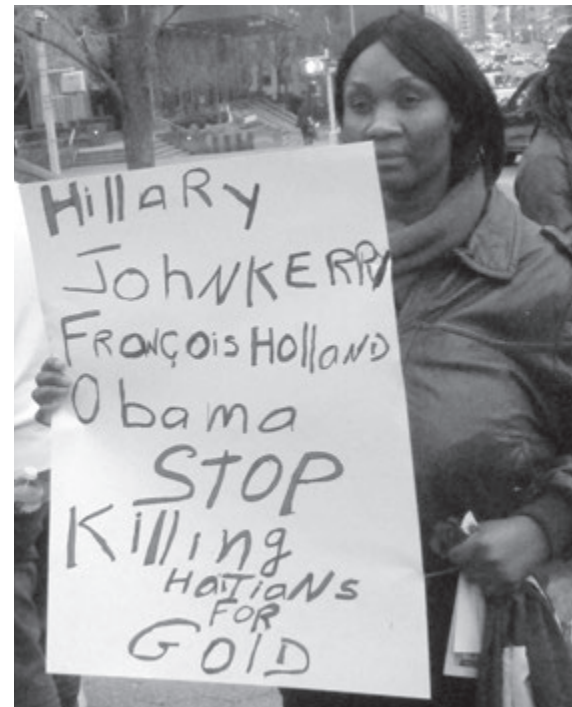 HillaRy
JohN KERRy
FRANÇOis HollAND
Obama
STOP
Killing
HaiTiaNs
FOR
GOlD